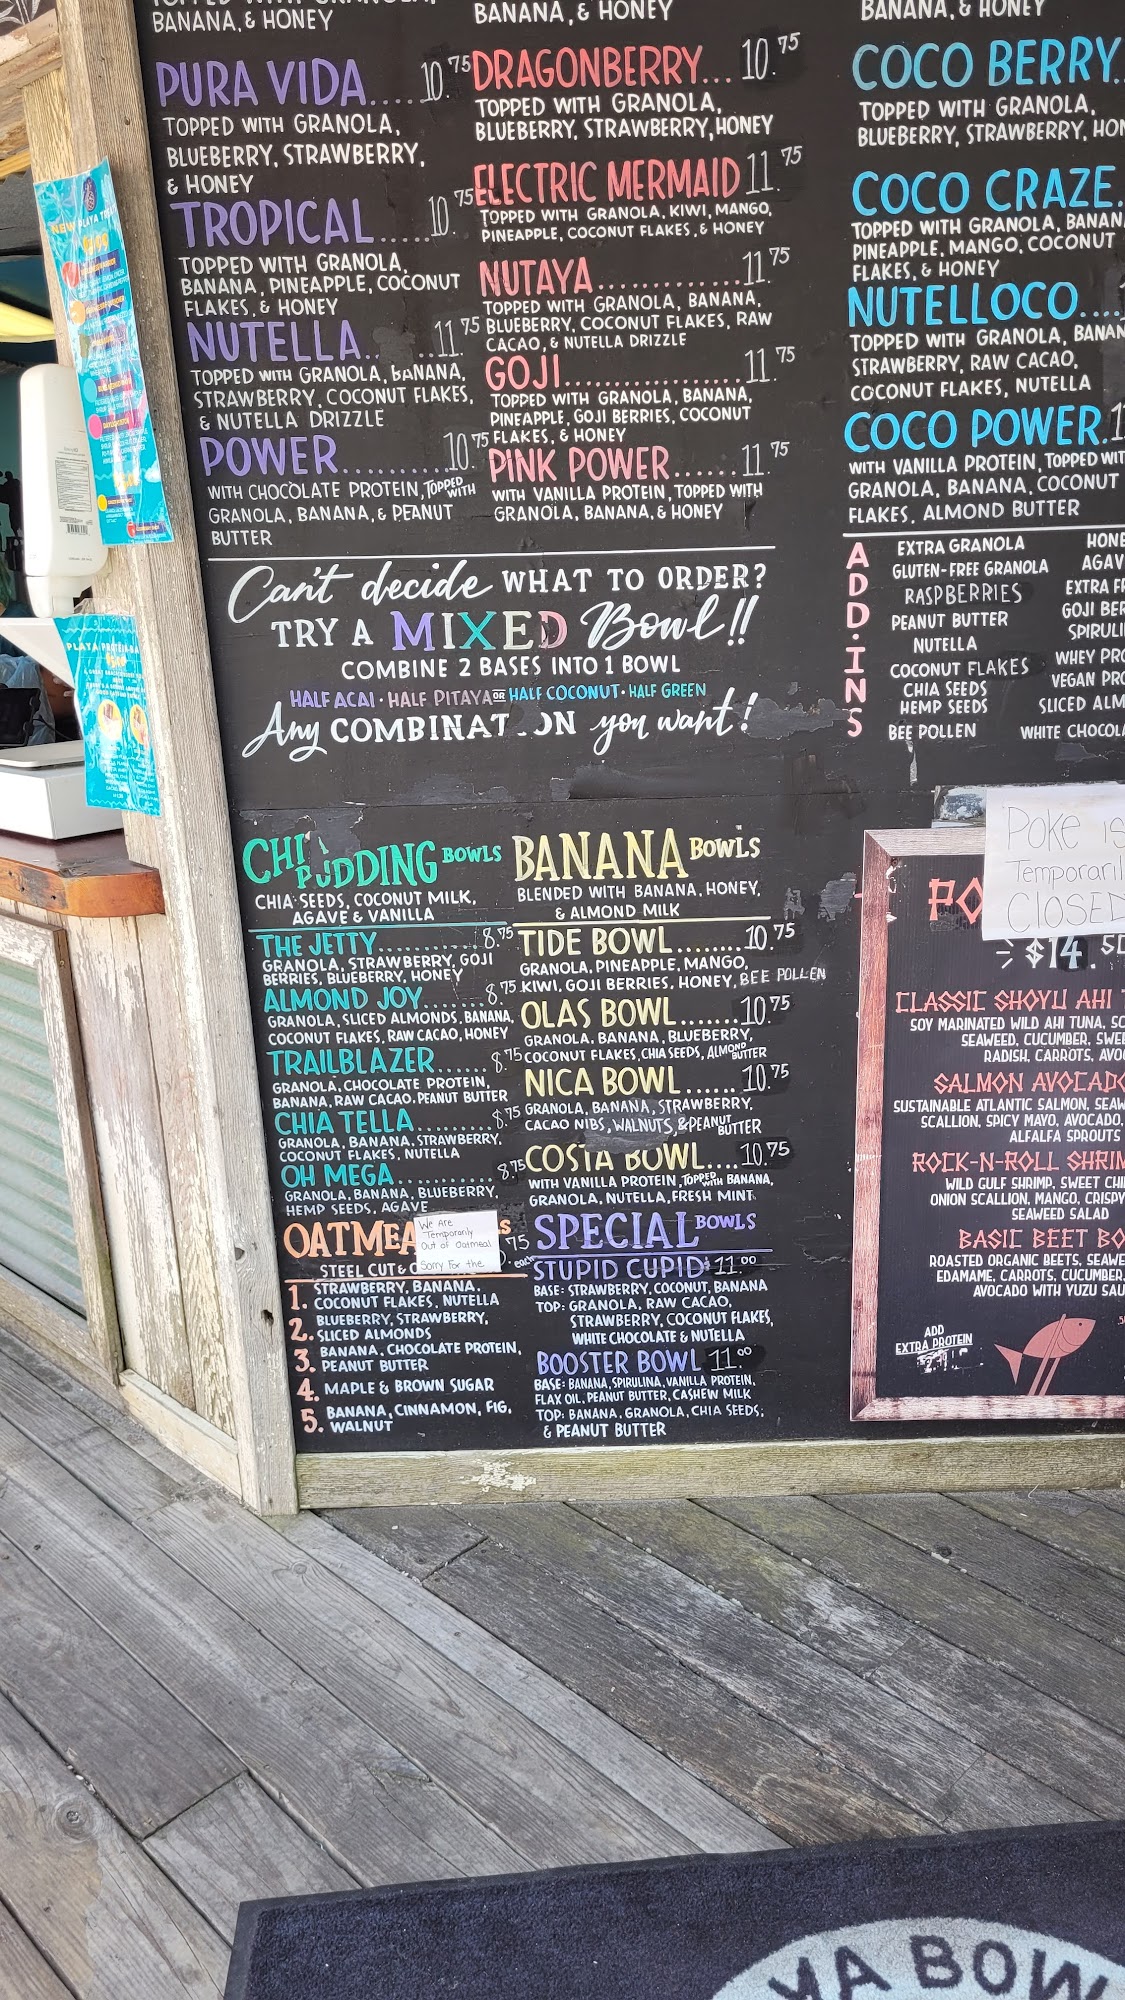 BANANA, & HONEY
PURA VIDA.....10.75
TOPPED WITH GRANOLA,
BLUEBERRY, STRAWBERRY,
& HONEY
TROPICAL.....10.75
TOPPED WITH GRANOLA,
BANANA, PINEAPPLE, COCONUT
FLAKES, & HONEY
NUTELLA.. ...11.75
TOPPED WITH GRANOLA, BANANA,
STRAWBERRY, COCONUT FLAKES,
& NUTELLA DRIZZLE
POWER..........10.75
WITH CHOCOLATE PROTEIN, TOPPED WITH
GRANOLA, BANANA, & PEANUT
BUTTER
BANANA, & HONEY
DRAGONBERRY... 10.75
TOPPED WITH GRANOLA,
BLUEBERRY, STRAWBERRY, HONEY
ELECTRIC MERMAID 11.75
TOPPED WITH GRANOLA, KIWI, MANGO,
PINEAPPLE, COCONUT FLAKES, & HONEY
NUTAYA.............11.75
TOPPED WITH GRANOLA, BANANA,
BLUEBERRY, COCONUT FLAKES, RAW
CACAO, & NUTELLA DRIZZLE
GOJI.................11.75
TOPPED WITH GRANOLA, BANANA,
PINEAPPLE, GOJI BERRIES, COCONUT
FLAKES, & HONEY
PINK POWER......11.75
WITH VANILLA PROTEIN, TOPPED WITH
GRANOLA, BANANA, & HONEY
BANANA, & HONEY
COCO BERRY.
TOPPED WITH GRANOLA,
BLUEBERRY, STRAWBERRY, HON
COCO CRAZE.
TOPPED WITH GRANOLA, BANAN
PINEAPPLE, MANGO, COCONUT
FLAKES, & HONEY
NUTELLOCO....
TOPPED WITH GRANOLA, BANAN
STRAWBERRY, RAW CACAO,
COCONUT FLAKES, NUTELLA
COCO POWER.1
WITH VANILLA PROTEIN, TOPPED WIT
GRANOLA, BANANA, COCONUT
FLAKES, ALMOND BUTTER
Can't decide WHAT TO ORDER?
TRY A MIXED Bowl!!
COMBINE 2 BASES INTO 1 BOWL
HALF ACAI · HALF PITAYA OR HALF COCONUT · HALF GREEN
Any COMBINAT ON you want!
ADD·INS
EXTRA GRANOLA
GLUTEN-FREE GRANOLA
RASPBERRIES
PEANUT BUTTER
NUTELLA
COCONUT FLAKES
CHIA SEEDS
HEMP SEEDS
BEE POLLEN
HONE
AGAV
EXTRA FR
GOJI BER
SPIRULI
WHEY PRO
VEGAN PRO
SLICED ALM
WHITE CHOCOLA
CHI PUDDING BOWLS
CHIA SEEDS, COCONUT MILK,
AGAVE & VANILLA
THE JETTY...........8.75
GRANOLA, STRAWBERRY, GOJI
BERRIES, BLUEBERRY, HONEY
ALMOND JOY........8.75
GRANOLA, SLICED ALMONDS, BANANA,
COCONUT FLAKES, RAW CACAO, HONEY
TRAILBLAZER......8.75
GRANOLA, CHOCOLATE PROTEIN,
BANANA, RAW CACAO, PEANUT BUTTER
CHIA TELLA.........8.75
GRANOLA, BANANA, STRAWBERRY,
COCONUT FLAKES, NUTELLA
OH MEGA............8.75
GRANOLA, BANANA, BLUEBERRY,
HEMP SEEDS, AGAVE
BANANA BOWLS
BLENDED WITH BANANA, HONEY,
& ALMOND MILK
TIDE BOWL........10.75
GRANOLA, PINEAPPLE, MANGO,
KIWI, GOJI BERRIES, HONEY, BEE POLLEN
OLAS BOWL.......10.75
GRANOLA, BANANA, BLUEBERRY,
COCONUT FLAKES, CHIA SEEDS, ALMOND BUTTER
NICA BOWL...... 10.75
GRANOLA, BANANA, STRAWBERRY,
CACAO NIBS, WALNUTS, & PEANUT BUTTER
COSTA BOWL....10.75
WITH VANILLA PROTEIN, TOPPED WITH BANANA,
GRANOLA, NUTELLA, FRESH MINT
OATMEA S
We Are
Temporarily
Out of Oatmeal
Sorry For the
.75 each
STEEL CUT &
1. STRAWBERRY, BANANA,
COCONUT FLAKES, NUTELLA
2. BLUEBERRY, STRAWBERRY,
SLICED ALMONDS
3. BANANA, CHOCOLATE PROTEIN,
PEANUT BUTTER
4. MAPLE & BROWN SUGAR
5. BANANA, CINNAMON, FIG,
WALNUT
SPECIAL BOWLS
STUPID CUPID $11.00
BASE: STRAWBERRY, COCONUT, BANANA
TOP: GRANOLA, RAW CACAO,
STRAWBERRY, COCONUT FLAKES,
WHITE CHOCOLATE & NUTELLA
BOOSTER BOWL 11.00
BASE: BANANA, SPIRULINA, VANILLA PROTEIN,
FLAX OIL, PEANUT BUTTER, CASHEW MILK
TOP: BANANA, GRANOLA, CHIA SEEDS,
& PEANUT BUTTER
POKE IS
Temporaril
CLOSED
PO
$14.50
CLASSIC SHOYU AHI
SOY MARINATED WILD AHI TUNA, SC
SEAWEED, CUCUMBER, SWE
RADISH, CARROTS, AVO
SALMON AVOCADO
SUSTAINABLE ATLANTIC SALMON, SEAW
SCALLION, SPICY MAYO, AVOCADO,
ALFALFA SPROUTS
ROCK-N-ROLL SHRIM
WILD GULF SHRIMP, SWEET CHI
ONION SCALLION, MANGO, CRISPY
SEAWEED SALAD
BASIC BEET BO
ROASTED ORGANIC BEETS, SEAWE
EDAMAME, CARROTS, CUCUMBER,
AVOCADO WITH YUZU SAU
ADD
EXTRA PROTEIN
YA BOW